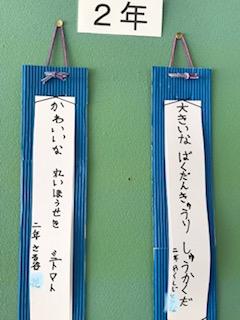 2年
大きいな ばくだんきゅうり しゅうかくだ
二年
かわいいな れいほうせき ミニトマト
二年